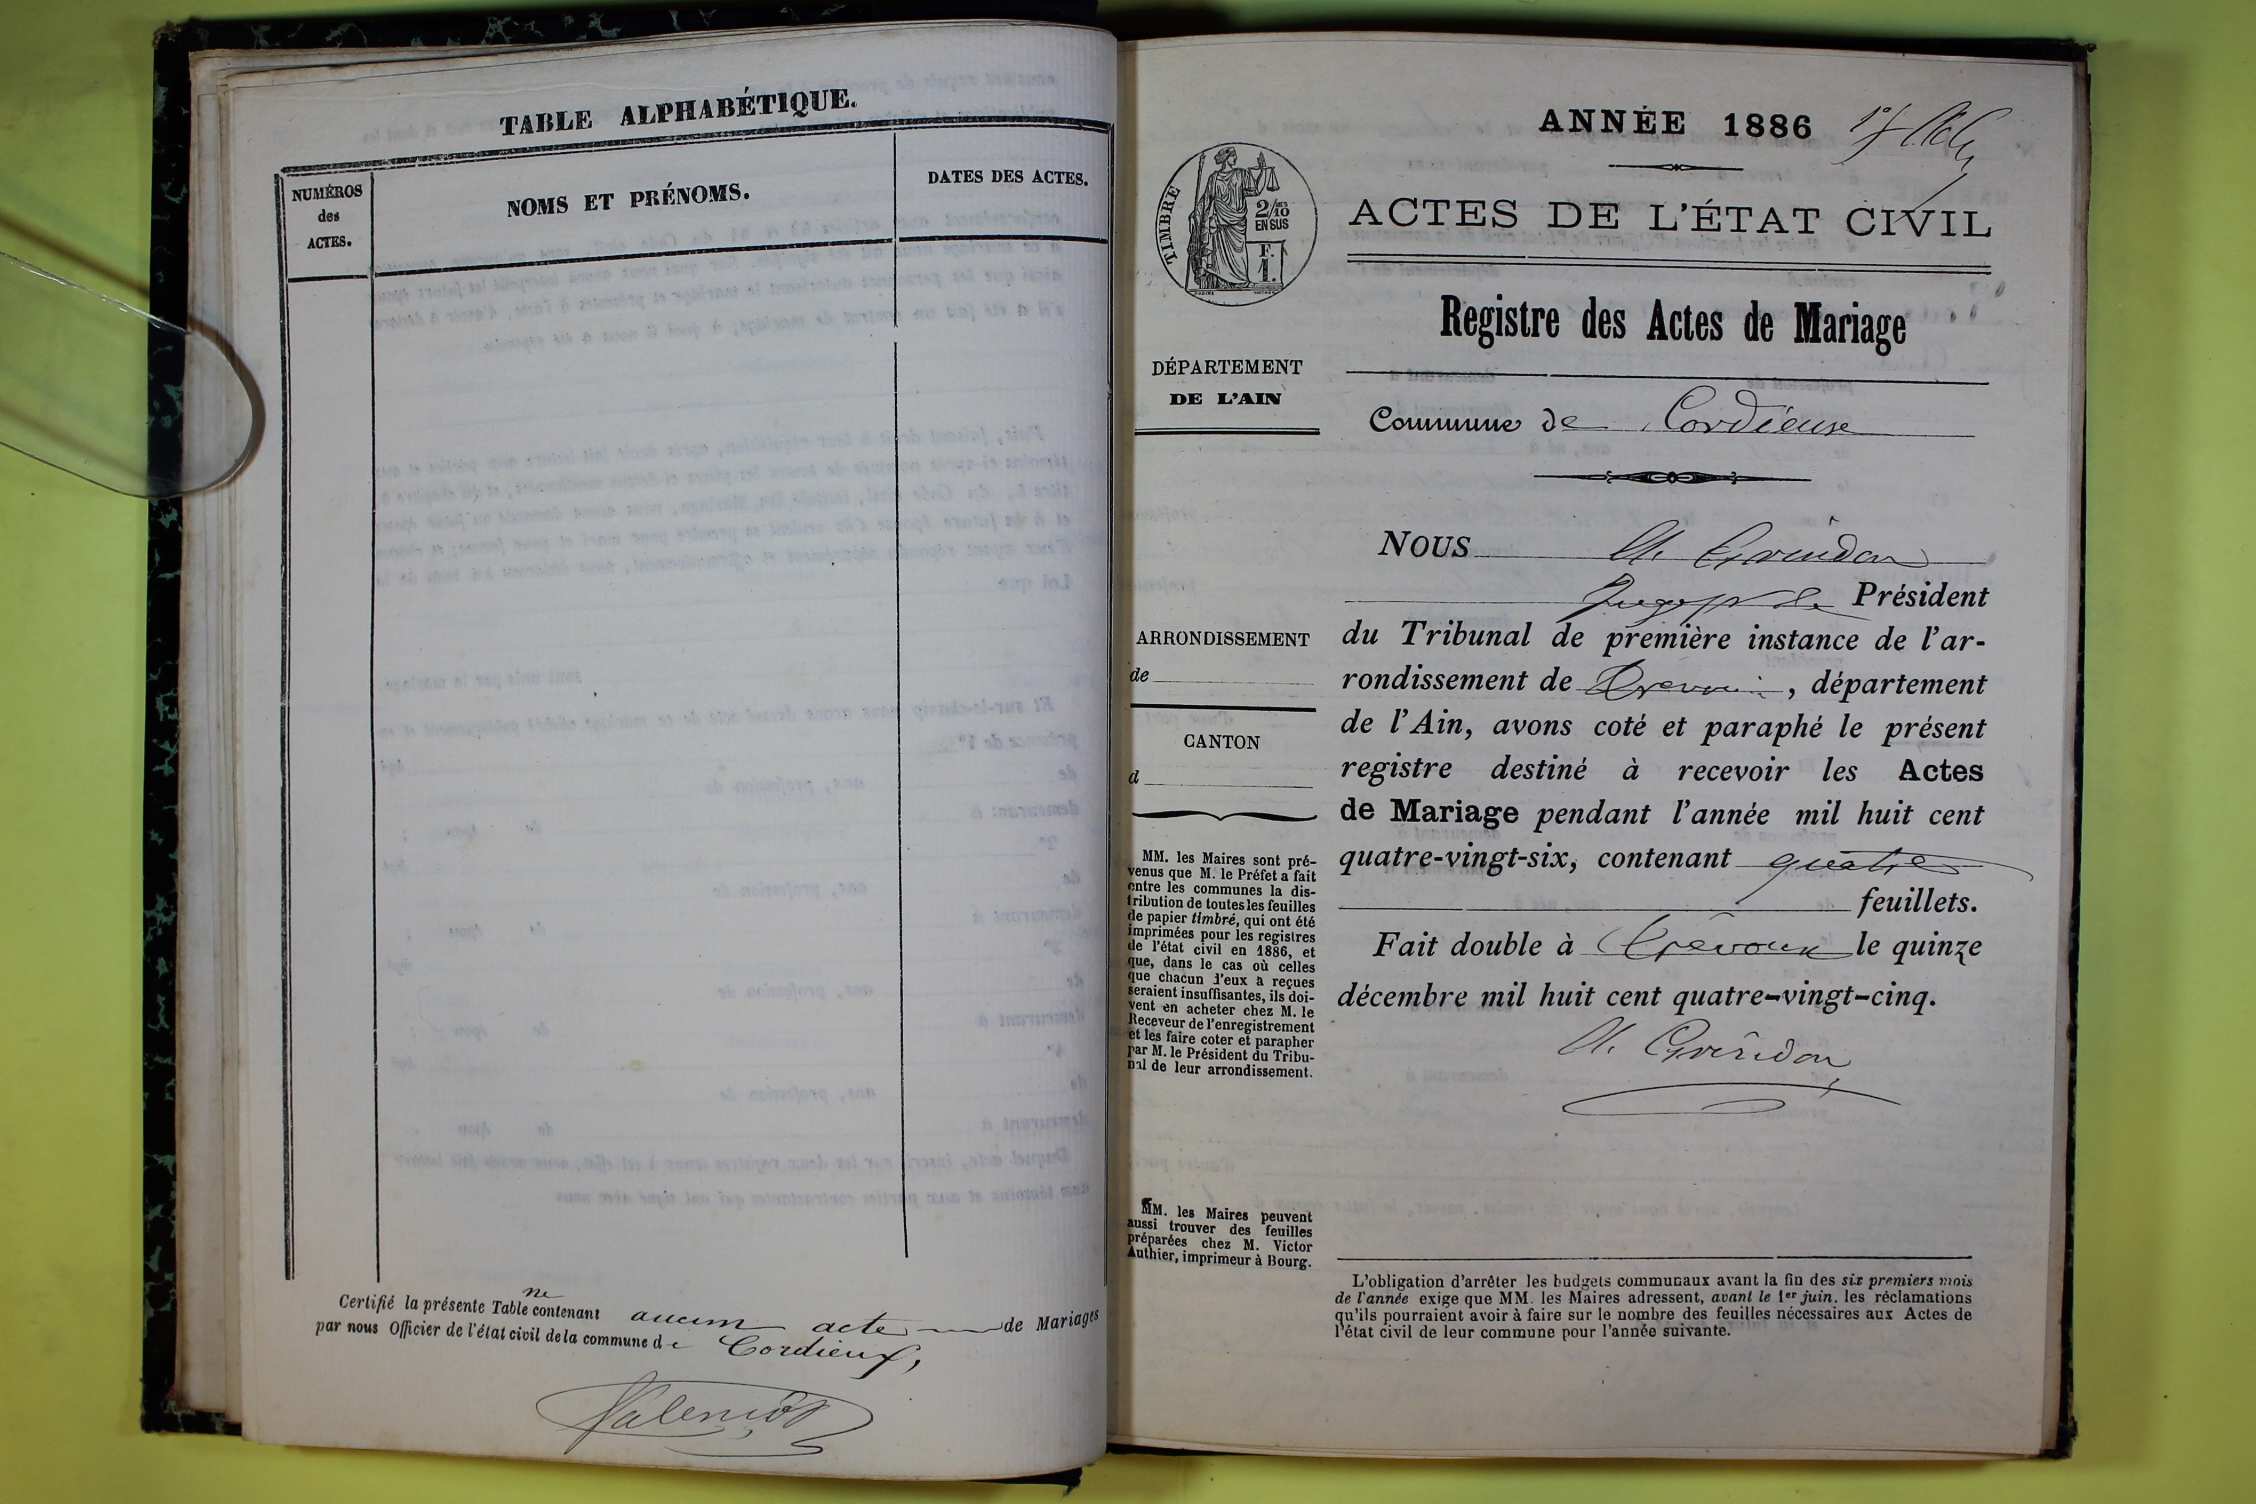 TABLE ALPHABÉTIQUE.
NUMÉROS
des
ACTES.
NOMS ET PRÉNOMS.
DATES DES ACTES.
ne
Certifié la présente Table contenant aucun acte de Mariages
par nous Officier de l'état civil de la commune de Cordieux,
ANNÉE 1886
ACTES DE L'ÉTAT CIVIL
TIMBRE
2/10
EN SUS
F.
1.
Registre des Actes de Mariage
DÉPARTEMENT
DE L'AIN
Commune de Cordieux
NOUS A. Grindon
Juge pr le Président
ARRONDISSEMENT
de
CANTON
d
du Tribunal de première instance de l'ar-
rondissement de Trévoux, département
de l'Ain, avons coté et paraphé le présent
registre destiné à recevoir les Actes
de Mariage pendant l'année mil huit cent
quatre-vingt-six, contenant quatre
feuillets.
Fait double à Trévoux le quinze
décembre mil huit cent quatre-vingt-cinq.
A. Grindon
MM. les Maires sont pré-
venus que M. le Préfet a fait
entre les communes la dis-
tribution de toutes les feuilles
de papier timbré, qui ont été
imprimées pour les registres
de l'état civil en 1886, et
que, dans le cas où celles
que chacun d'eux a reçues
seraient insuffisantes, ils doi-
vent en acheter chez M. le
Receveur de l'enregistrement
et les faire coter et parapher
par M. le Président du Tribu-
nal de leur arrondissement.
MM. les Maires peuvent
aussi trouver des feuilles
préparées chez M. Victor
Authier, imprimeur à Bourg.
L'obligation d'arrêter les budgets communaux avant la fin des six premiers mois
de l'année exige que MM. les Maires adressent, avant le 1er juin, les réclamations
qu'ils pourraient avoir à faire sur le nombre des feuilles nécessaires aux Actes de
l'état civil de leur commune pour l'année suivante.